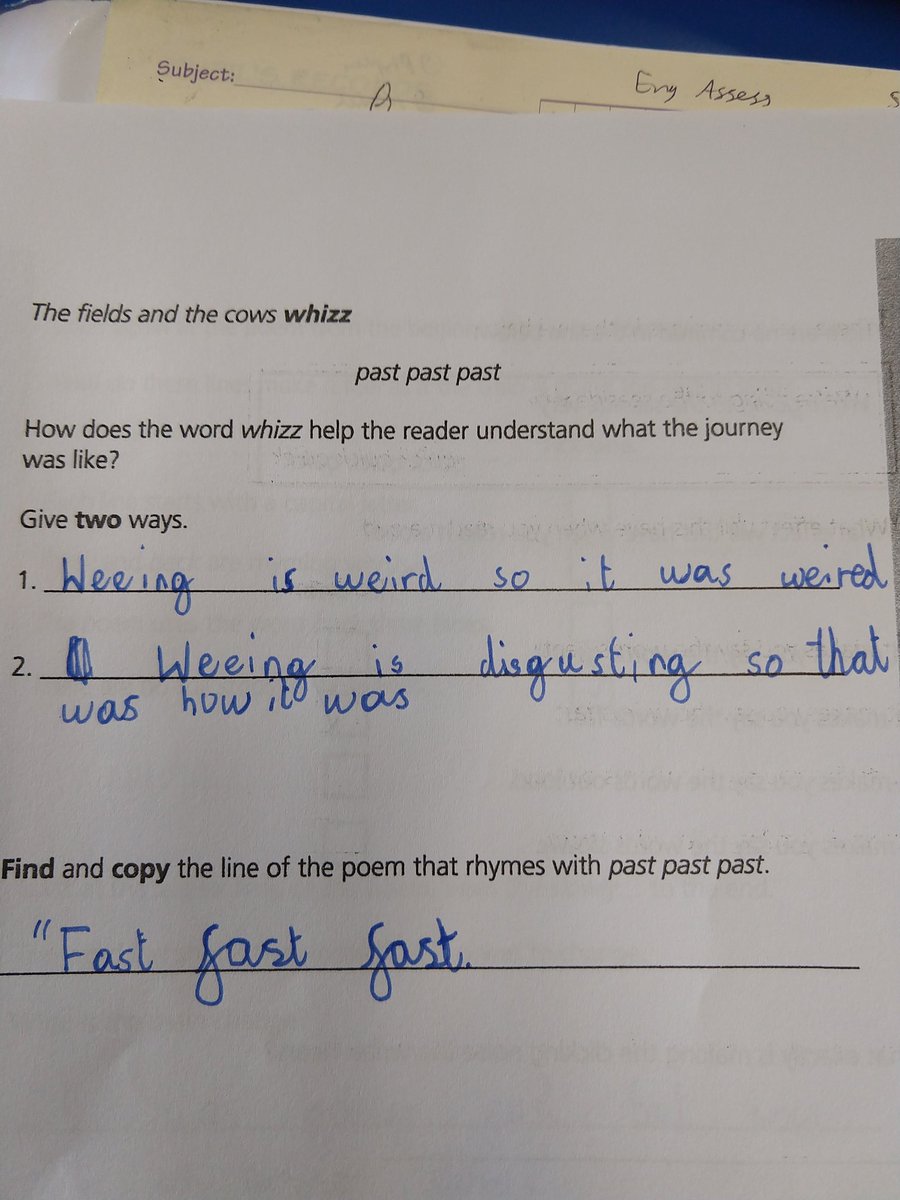 Subject:
Eng Assess
The fields and the cows whizz
past past past
How does the word whizz help the reader understand what the journey
was like?
Give two ways.
1. Weeing is weird so it was weired
2. Weeing is disgusting so that
was how it was
Find and copy the line of the poem that rhymes with past past past.
"Fast fast fast.